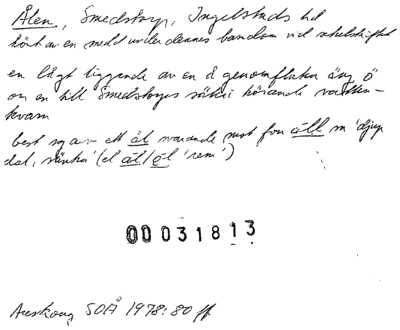 Ålen, Smedstorp, Ingelstads hd
hört av en medd under dennes barndom vid skelskiftet
en lågt liggande av en å genomfluten äng ö
om en till Smedstorps säteri hörande vatten-
kvarn
best sg av ett ål svarande mot fvn áll m 'djup
dal, ränna' (el ál/ól 'rem')
00031813
SOÅ 1978:80 ff